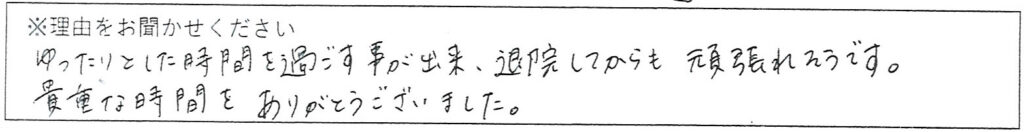 ※理由をお聞かせください
ゆったりとした時間を過ごす事が出来、退院してからも頑張れそうです。
貴重な時間をありがとうございました。